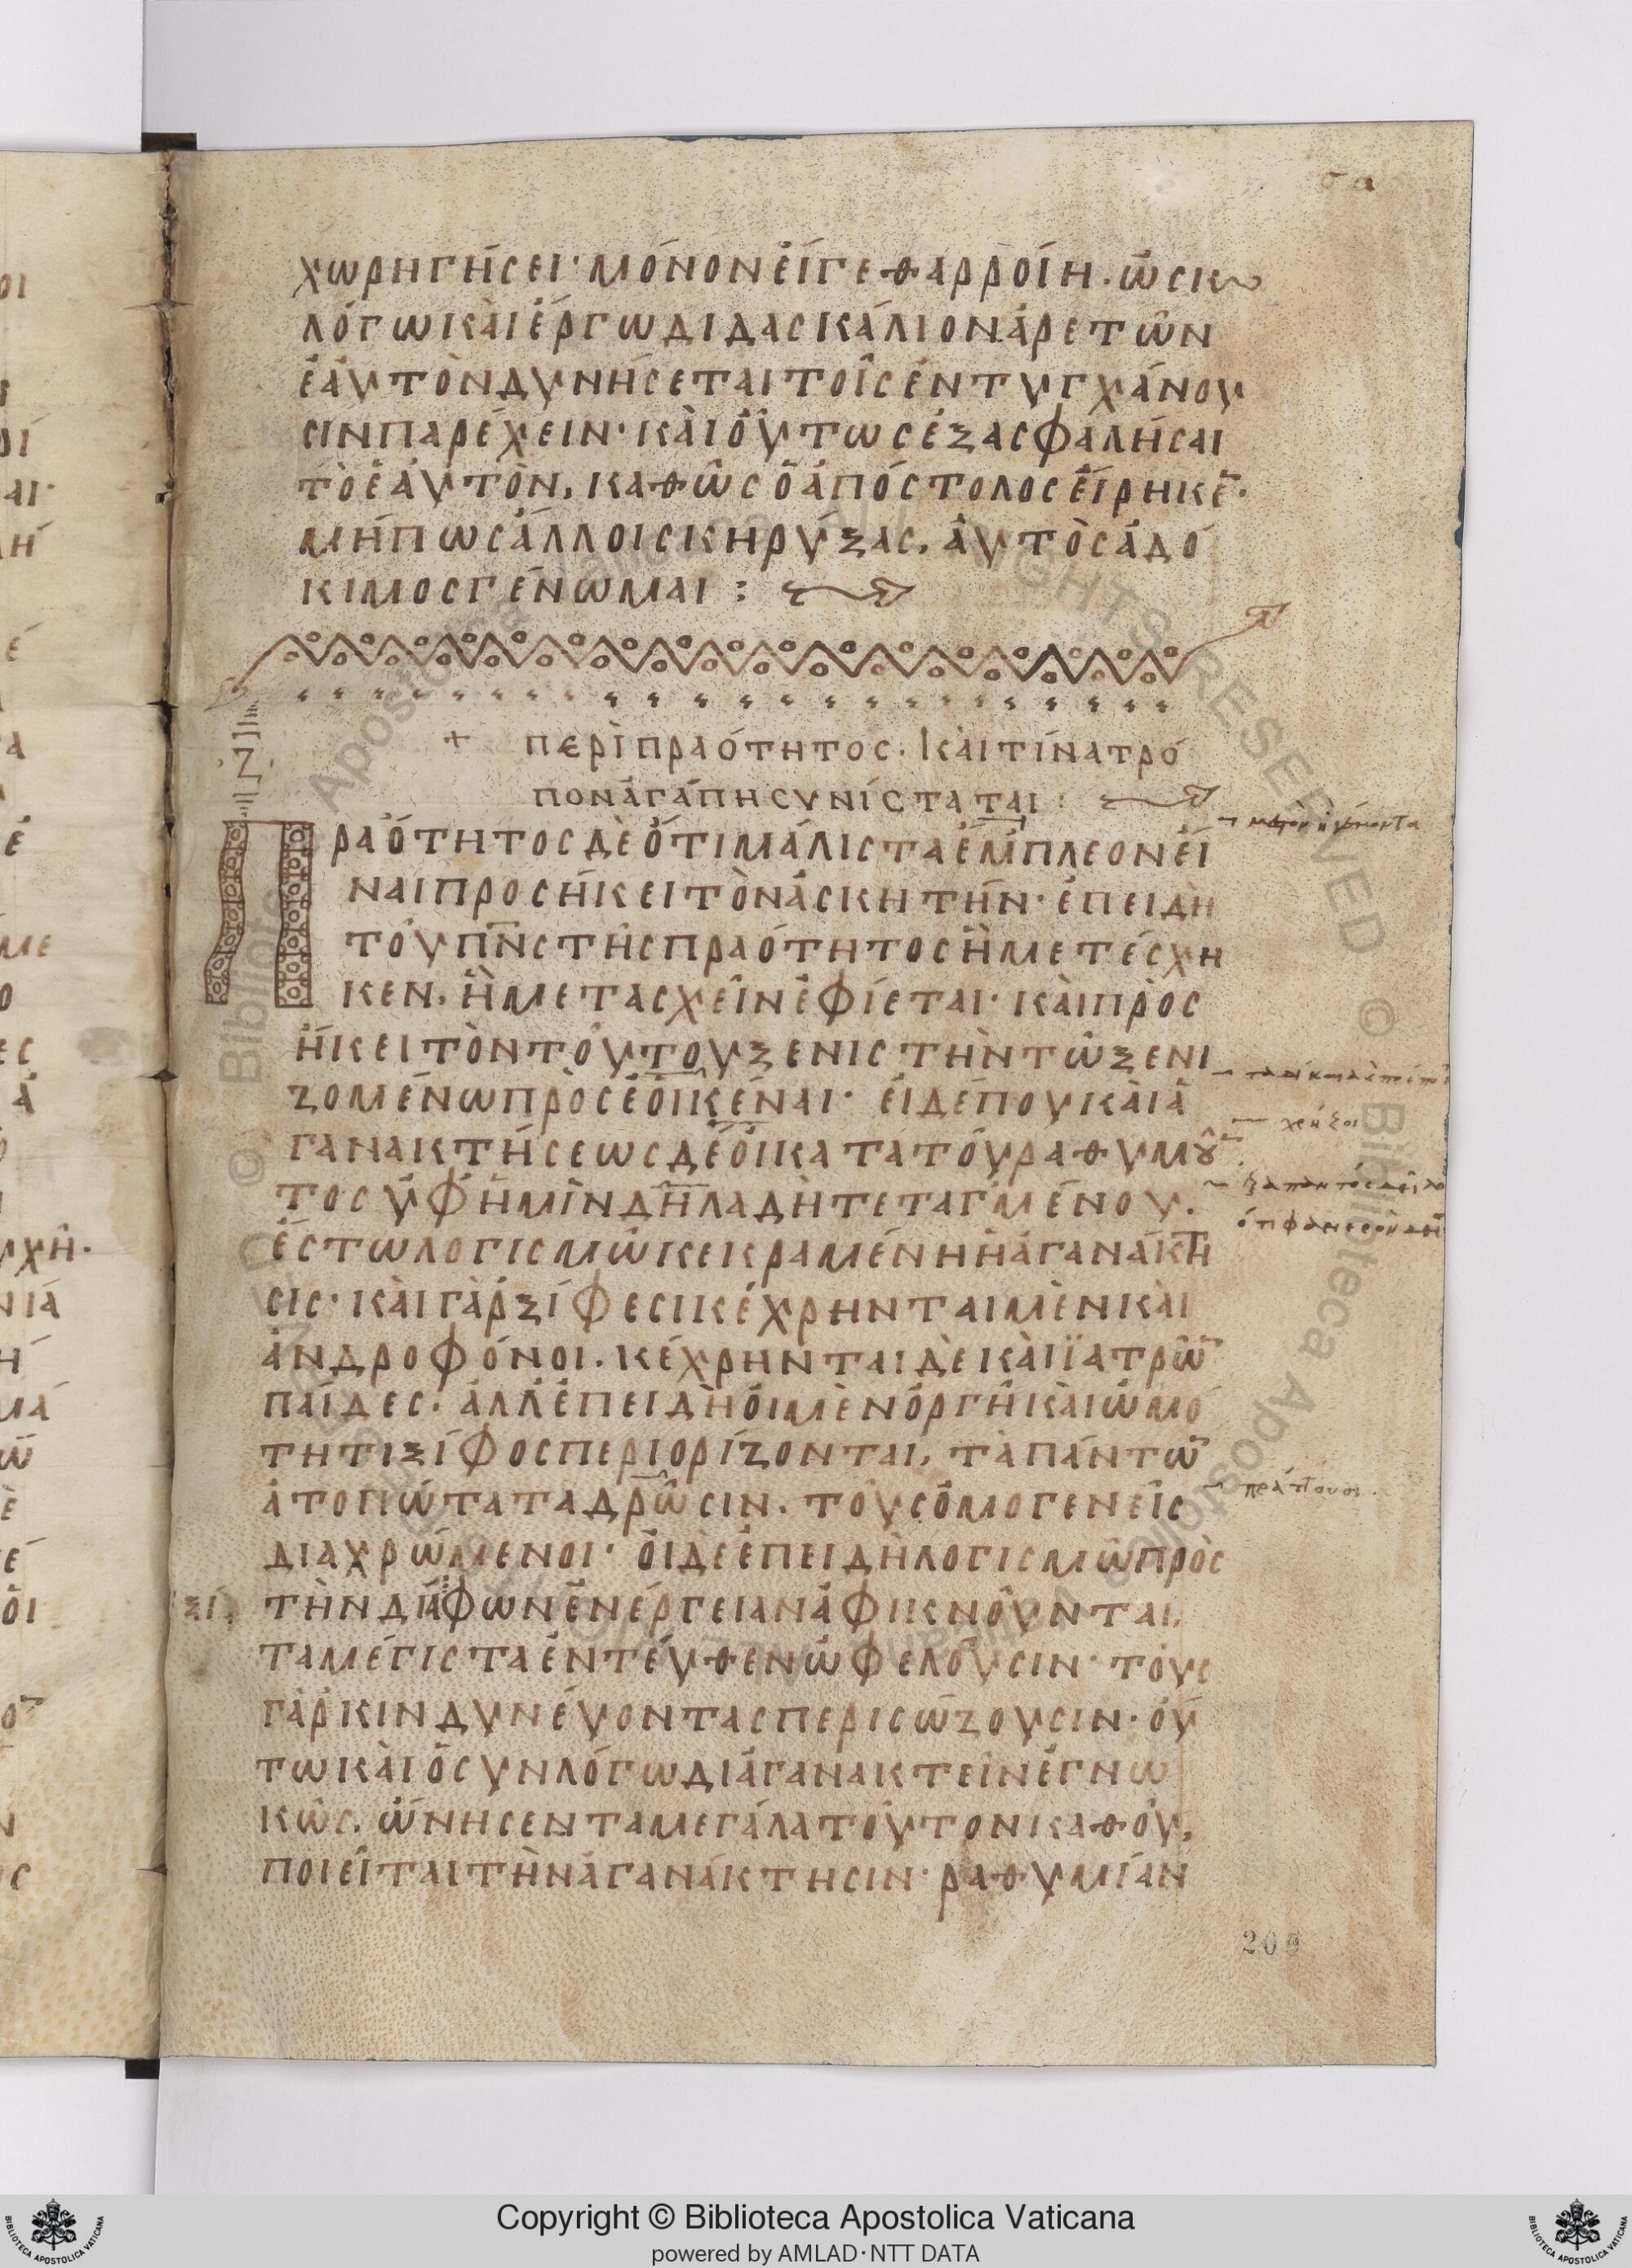 σα
χωρηγήσει· μόνον εἴγε θαρροίη. ὡς κ(αὶ)
λόγω καὶ ἔργω διδασκάλιον ἀρετῶν
ἑαυτὸν δυνήσεται τοῖς ἐντυγχάνου
σιν παρέχειν· καὶ οὕτως ἐξασφαλήσαι
τὸ ἑαυτὸν, καθὼς ὁ ἀπόστολος εἴρηκε̅·
μήπως ἄλλοις κηρύξας, αὐτὸς ἀδό
κιμος γένωμαι :
+ περὶ πραότητος. καὶ τίνα τρό
πον ἀγάπη συνίσταται :
Πραότητος δὲ ὅτι μάλιστα ἔμπλεον εἶ
ναι προσήκει τὸν ἀσκητήν· ἐπειδὴ
τοῦ π̅ν̅ς τῆς πραότητος ἢ μετέσχη
κεν, ἢ μετασχεῖν ἐφίεται· καὶ πρὸς
ήκει τὸν τούτου ξενιστὴν τῶ ξενι
ζομένω προσεοικέναι· εἰ δέ που καὶ ἀ
γανακτήσεως δέοι κατὰ τοῦ ραθυμοῦ̅
τος ὑφ' ἡμῖν δηλαδὴ τεταγμένου.
ἔστω λογισμῶ κεκραμένη ἡ ἀγανάκτη
σις· καὶ γὰρ ξίφεσι κέχρηνται μὲν καὶ
ἀνδροφόνοι. κέχρηνται δὲ καὶ ϊατρῶ̅
παίδες. ἀλλ' ἐπειδὴ οἱ μὲν ὀργῆ καὶ ὠμό
τητι ξίφος περιορίζονται, τὰ πάντω̅
ἀτοπώτατα δρῶσιν. τοὺς ὁμογενεῖς
διαχρώμενοι· οἱ δὲ ἐπειδὴ λογισμῶ πρὸς
τὴν διάφων ἐνέργειαν ἀφικνοῦνται,
ξί.
τα μέγιστα ἐντεῦθεν ὠφελοῦσιν· τοὺς
γὰρ κινδυνεύοντας περισώζουσιν· οὕ
τω καὶ ὁ σὺν λόγω διαγανακτεῖν ἐγνω
κὼς, ὤνησεν τα μεγάλα τοῦτον καθ' οὗ,
ποιεῖται τὴν ἀγανάκτησιν· ραθυμίαν
χρήζοι
πράττουσι.
209
Copyright © Biblioteca Apostolica Vaticana
powered by AMLAD·NTT DATA